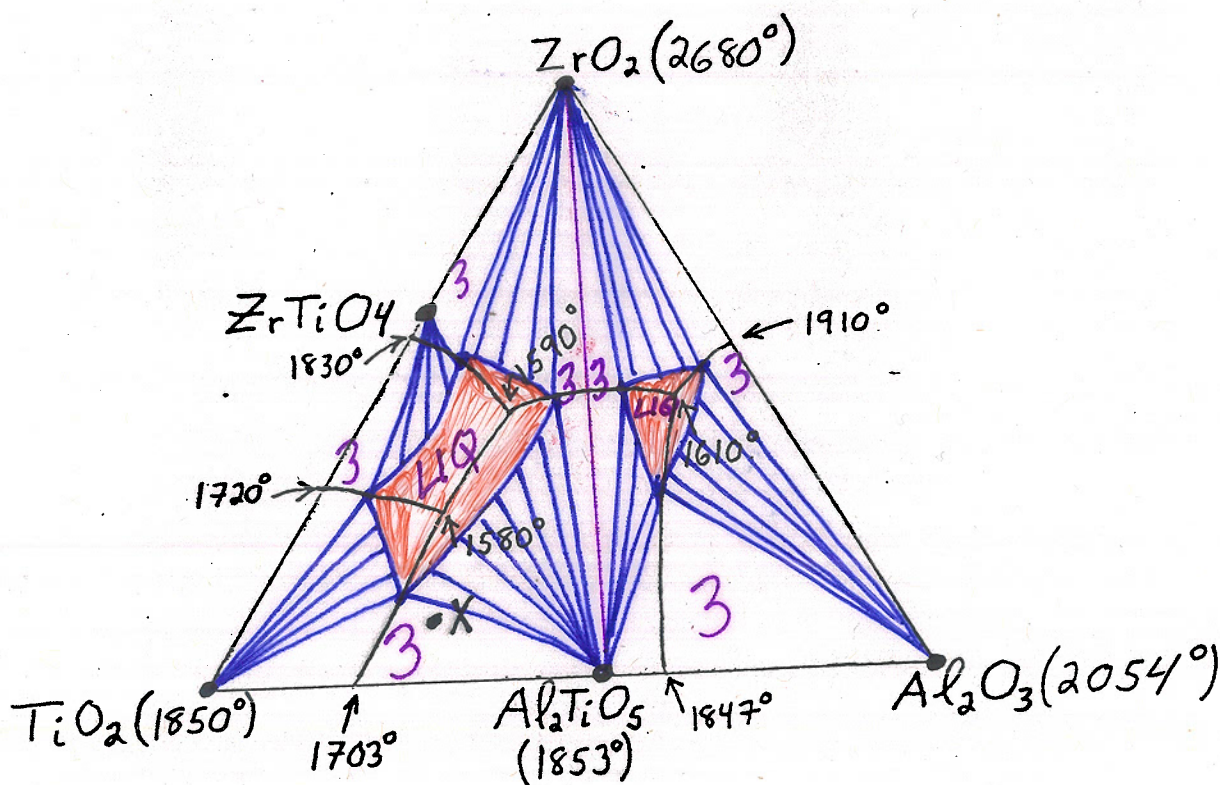 ZrO₂ (2680°)
3
ZrTiO4
1830°
1590°
1910°
3 3
3
LIQ
LIQ
3
1720°
1610°
1580°
3
X
3
TiO₂ (1850°)
1703°
Al₂TiO₅
(1853°)
1847°
Al₂O₃ (2054°)